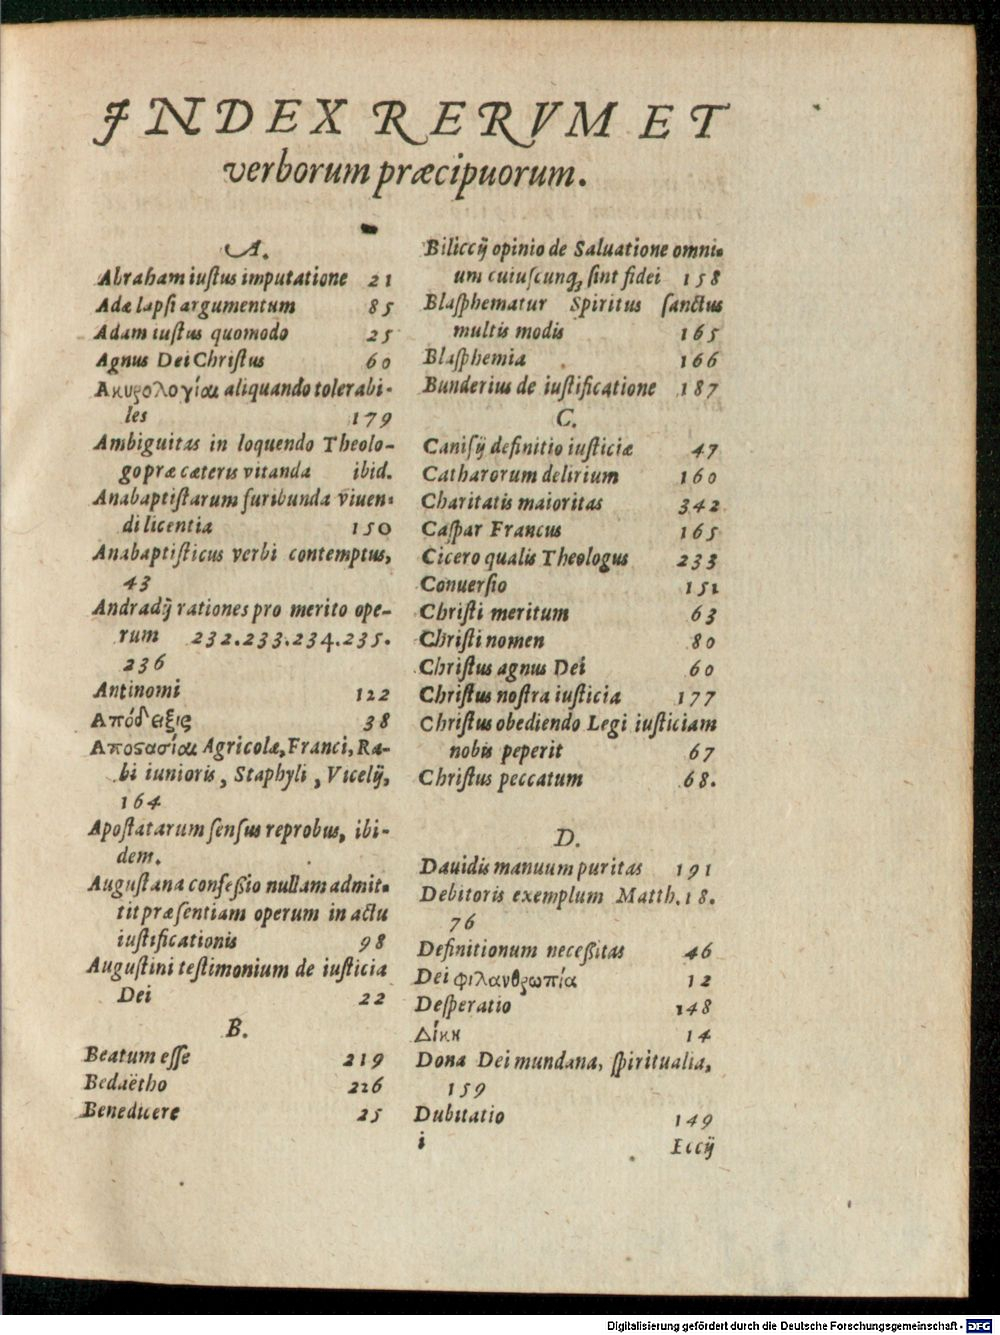 INDEX RERVM ET
verborum præcipuorum.
A.
Abraham iustus imputatione 21
Adæ lapsi argumentum 85
Adam iustus quomodo 25
Agnus Dei Christus 60
Ακυρολογίαι aliquando tolerabi-
les 179
Ambiguitas in loquendo Theolo-
go præ cæteris vitanda ibid.
Anabaptistarum furibunda viuen-
di licentia 150
Anabaptisticus verbi contemptus,
43
Andradij rationes pro merito ope-
rum 232.233.234.235.
236
Antinomi 122
Απόδειξις 38
Αποςασίαι Agricolæ, Franci, Ra-
bi iunioris, Staphyli, Vicelij,
164
Apostatarum sensus reprobus, ibi-
dem.
Augustana confeßio nullam admit-
tit præsentiam operum in actu
iustificationis 98
Augustini testimonium de iusticia
Dei 22
B.
Beatum esse 219
Bedaëtho 226
Benedicere 25
Biliccij opinio de Saluatione omni-
um cuiuscunq; sint fidei 158
Blasphematur Spiritus sanctus
multis modis 165
Blasphemia 166
Bunderius de iustificatione 187
C.
Canisij definitio iusticiæ 47
Catharorum delirium 160
Charitatis maioritas 342
Caspar Francus 165
Cicero qualis Theologus 233
Conuersio 151
Christi meritum 63
Christi nomen 80
Christus agnus Dei 60
Christus nostra iusticia 177
Christus obediendo Legi iusticiam
nobis peperit 67
Christus peccatum 68.
D.
Dauidis manuum puritas 191
Debitoris exemplum Matth.18.
76
Definitionum neceßitas 46
Dei φιλανθρωπία 12
Desperatio 148
Δίκη 14
Dona Dei mundana, spiritualia,
159
Dubitatio 149
i Eccij
Digitalisierung gefördert durch die Deutsche Forschungsgemeinschaft - DFG